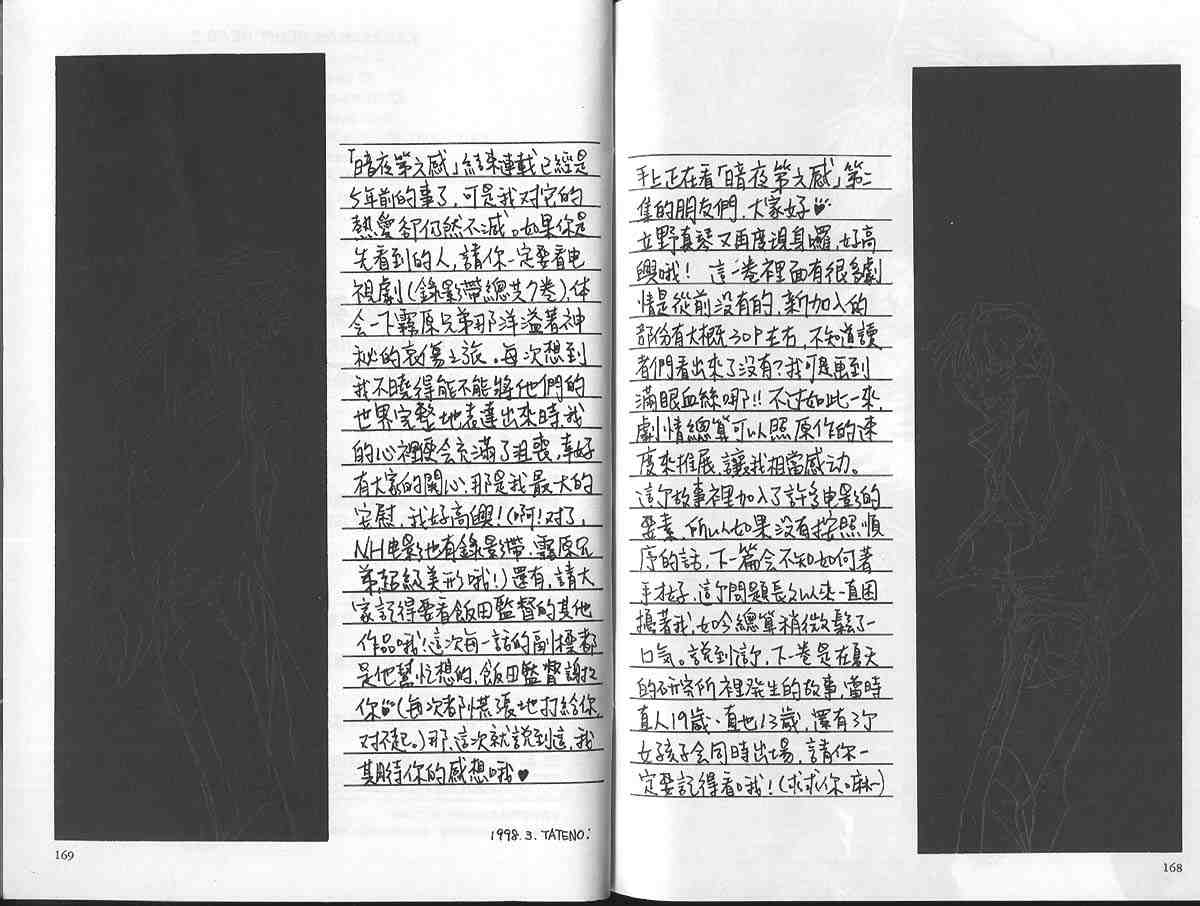 手上正在看「暗夜第六感」第二
集的朋友們，大家好♥
立野真琴又再度現身囉，好高
興哦！ 這一卷裡面有很多劇
情是從前沒有的，新加入的
部份有大概30P左右，不知道讀
者們看出來了沒有？我可是畫到
滿眼血絲哪!! 不过如此一來，
劇情總算可以照原作的速
度來推展，讓我相當感动。
這个故事裡加入了許多电影的
要素，所以如果沒有按照順
序的話，下一篇会不知如何著
手才好，這个問題長久以來一直困
擾著我，如今總算稍微鬆了一
口氣。説到這，下一卷是在夏天
的研究所裡發生的故事，當時
真人19歲、直也13歲，還有3个
女孩子会同時出場，請你一
定要記得看哦！（求求你嘛～）
168
「暗夜第六感」結束連載已經是
5年前的事了，可是我对它的
熱愛卻仍然不減。如果你是
先看到的人，請你一定要看电
視劇（錄影帶總共7卷），体
会一下霧原兄弟那洋溢著神
秘的哀傷之旅。每次想到
我不曉得能不能將他們的
世界完整地表達出來時，我
的心裡便会充滿了沮喪，幸好
有大家的關心，那是我最大的
安慰，我好高興！（啊！对了，
NH电影也有錄影帶，霧原兄
弟超級美形哦！）還有，請大
家記得要看飯田監督的其他
作品哦！這次每一話的副標都
是他幫忙想的，飯田監督謝謝
你♥（每次都慌張地打給你，
对不起。）那，這次就説到這，我
期待你的感想哦♥
1998.3.TATENO.
169